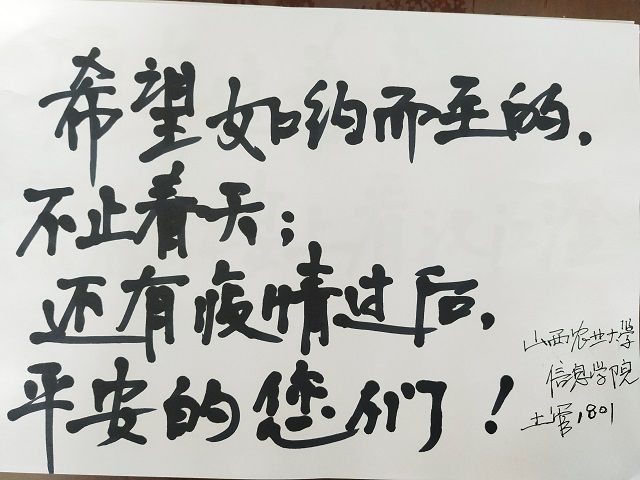 希望如约而至的,
不止春天;
还有疫情过后,
平安的您们!
山西农业大学
信息学院
土管1801